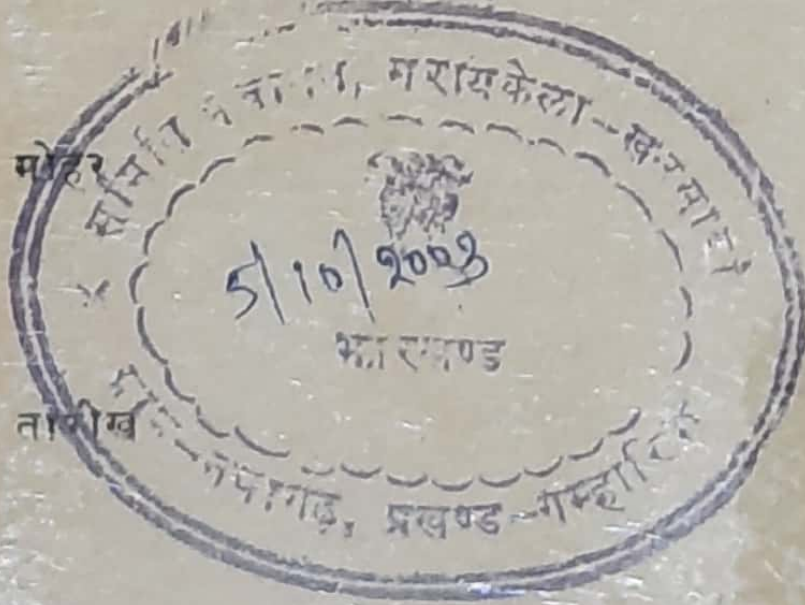 मोहर
समिति सरायकेला-खरसावाँ
5/10/2003
झारखण्ड
तारीख
प्रखण्ड-गम्हारिया